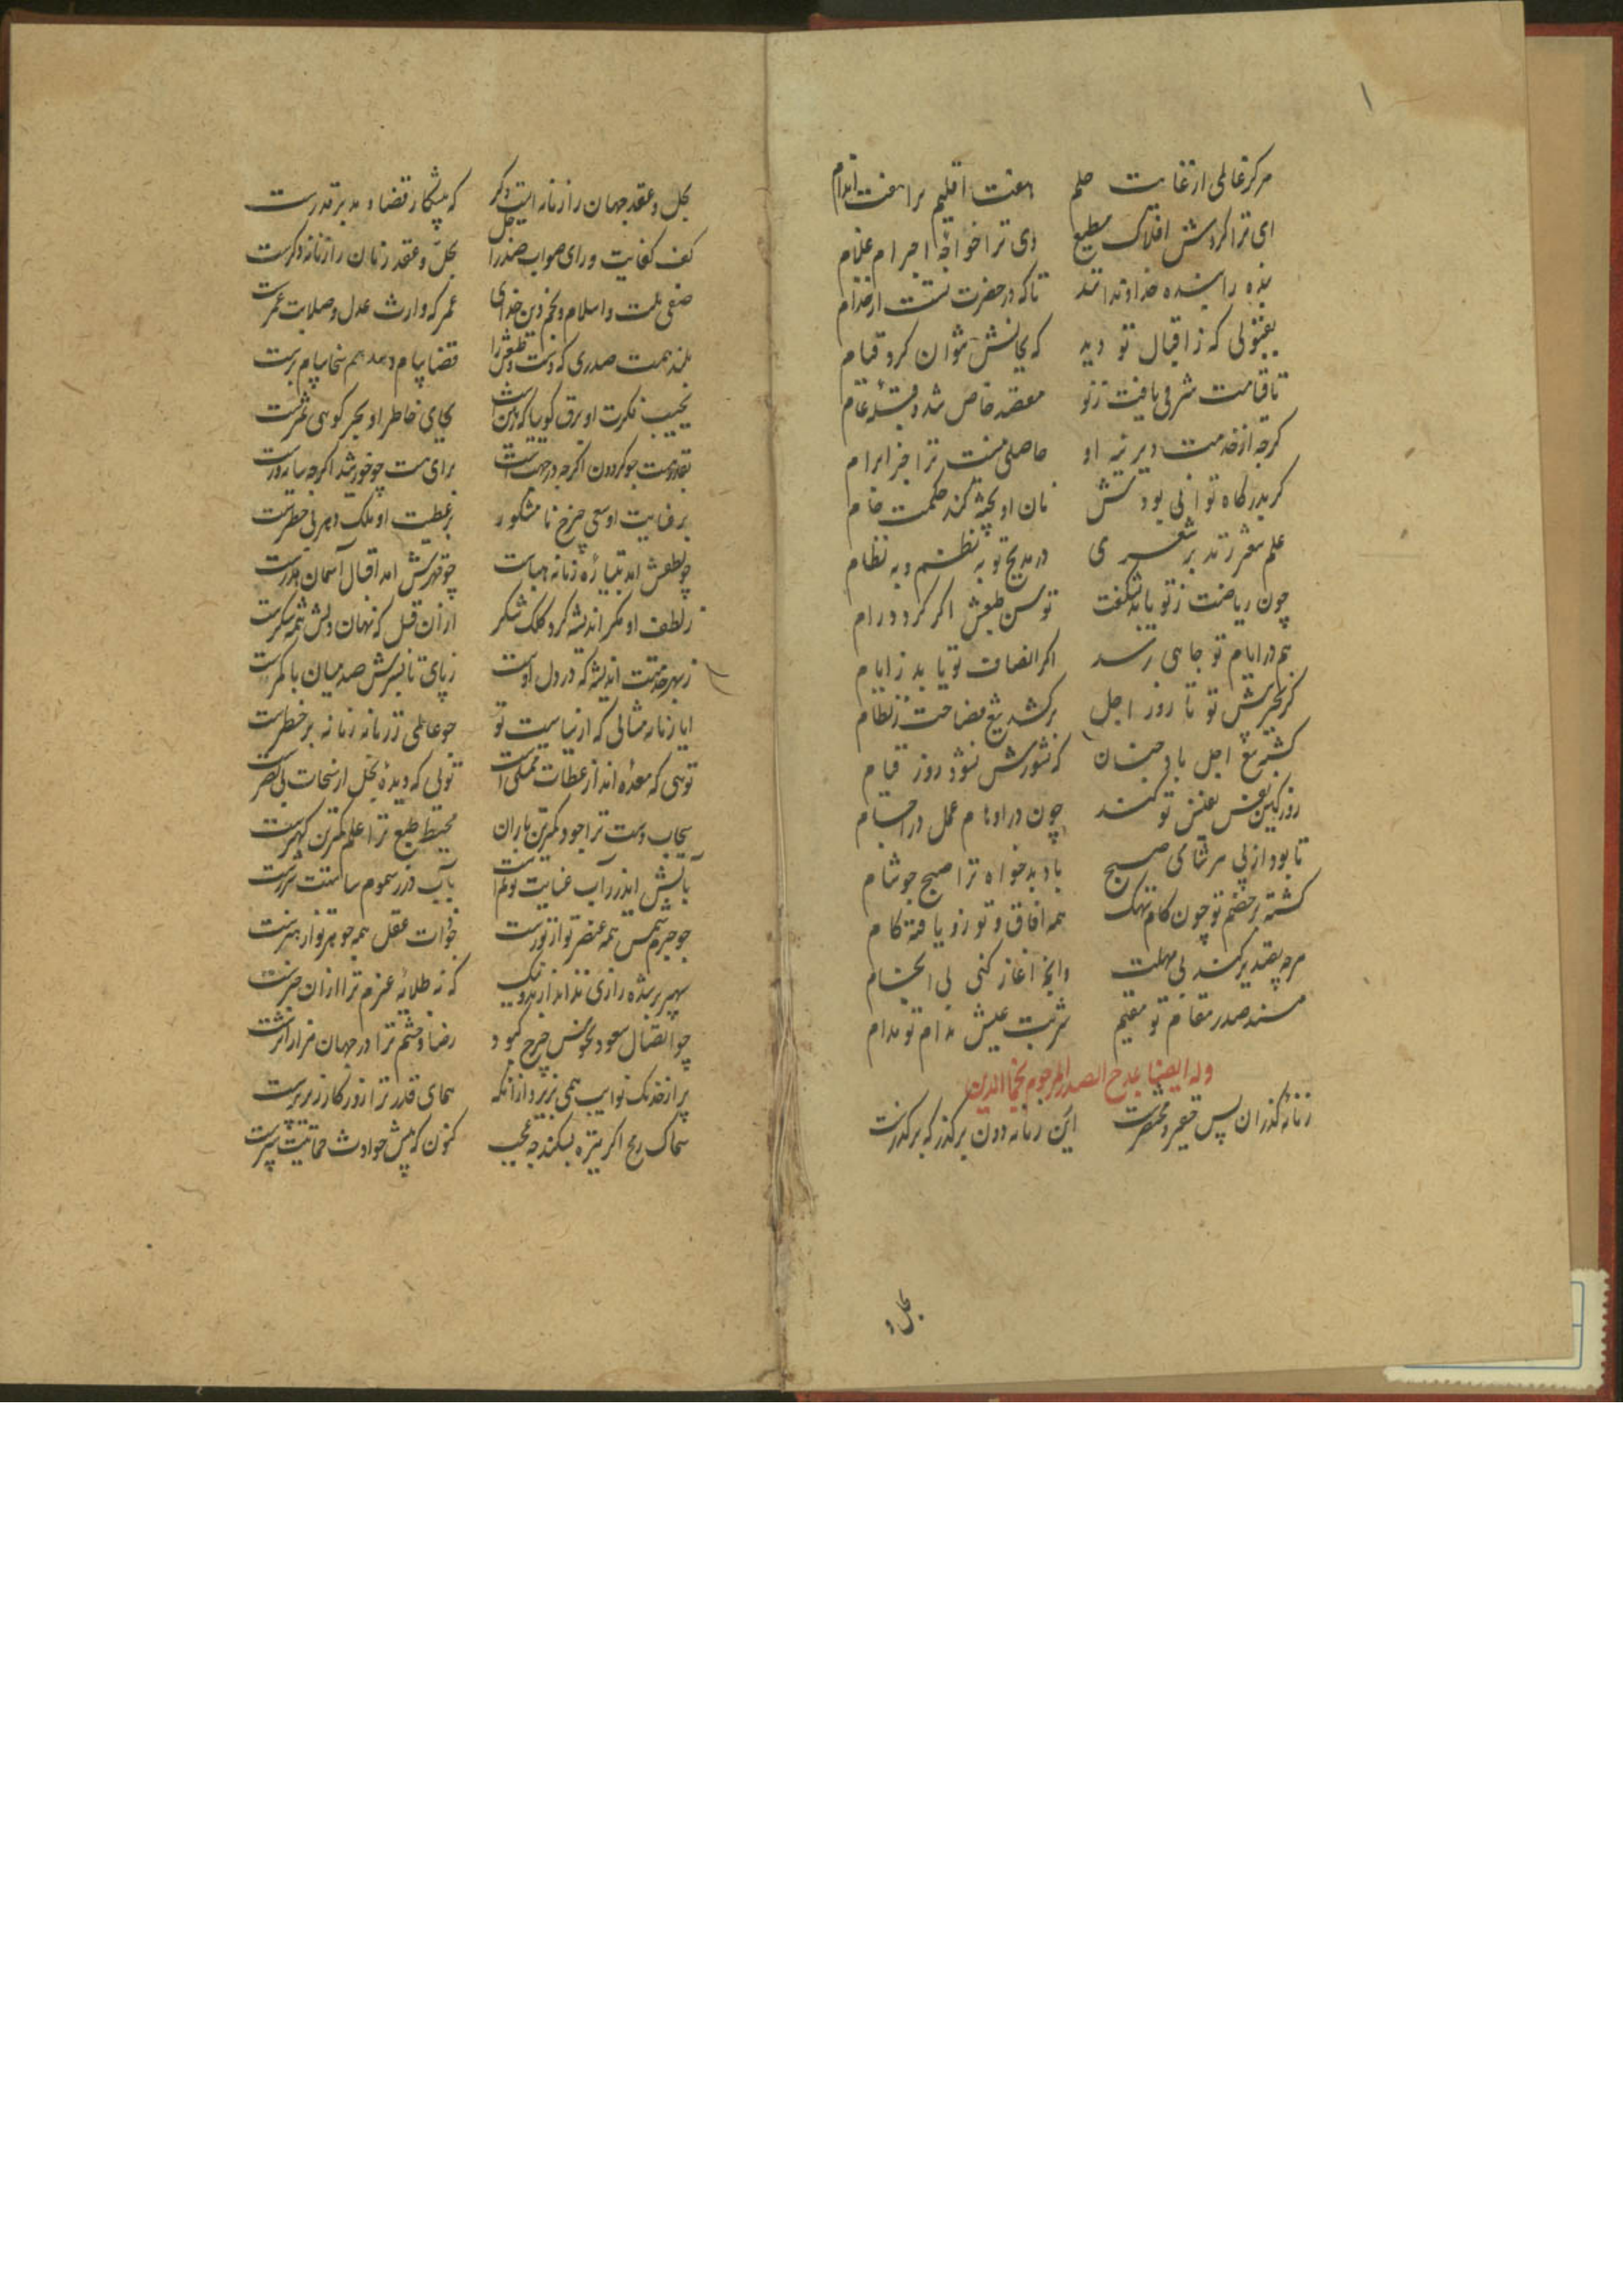 ۱
مرکز عالمی از غایت حلم هفت اقلیم ترا هفت اندام
ای ترا گردش افلاک مطیع وی ترا خواجهٔ اجرام غلام
بنده را بنده خداوندانند تا که در حضرتت از خدام
بقبولی که ز اقبال تو دید که بجانش نتوان کرد قیام
تا قیامت شرفی یافت ز تو مقصد خاص شد و قبلهٔ عام
کرچه از خدمت دیرینه او حاصلی نیست ترا جز ابرام
کر بدرکاه تو آبی بودش نان او پخته کند حکمت خام
علم شعر زند بر شعری در مدیح تو به نظم و به نظام
چون ریاضت ز تو یابد شکفت توسن طبعش اکر کردد رام
هم در ایام تو جایی برسد اکر انصاف تو یابد ز ایام
کر نپرسیش تو تا روز اجل برکشد تیغ فصاحت ز نیام
کشته تیغ اجل باد چنان که نشورش نشود روز قیام
روز کین نفس تو کند چون در اوهام عمل در اجسام
تا بود از پی هر شام صبح باد بدخواه ترا صبح چو شام
کشته بر خصم تو چون کام نهنک همه آفاق و تو زو یافته کام
هرچه تقدیر کند بی مهلت وانچه آغاز کنی بی انجام
مسند صدر مقام تو مقیم شربت عیش مدام تو مدام
وله ایضا بمدح الصدر المرحوم نجم الدین
زمانه کذران بس حقیر و مختصرست ازین زمانه دون برکذر که برکذرست
بحل و
بحل و عقد جهان را زمانه ایست دکر که پیشکار قضا و مدبر قدرست
کف کفایت و رای صواب صدر اجل بحل و عقد زمان را زمانه دکرست
صفی ملت و اسلام و نجم دین خدای عمر که وارث عدل و صلابت عمرست
بلند همت صدری که دست و طبعش را قضا پیام دهد هم سخا پیام برست
بجنب فکرت او برق کویی ساکنست بجای خاطر او بحر کویی شمرست
بقدر هست چو کردون اکرچه در جهتست برای هست چو خورشید اکرچه سایه ورست
بر عنایت او سعی چرخ نامشکور بر عطیت او ملک دهر بی خطرست
چو لطفش آمد بتیارهٔ زمانه هباست چو قهرش آمد اقبال آسمان هدرست
ز لطف او مکر اندیشه کرد کلک شکر از آن قبل که نهان دلش همه شکرست
ز بهر خدمتت اندیشه که در دل اوست ز پای تا بسرش صد میان با کمرست
ایا زمانه مثالی که از سیاست تو چو عالمی ز زمانه زمانه بر خطرست
تویی که معده آز از عطات ممتلی است تویی که دیدهٔ بخل از سخات بی بصرست
سحاب دست ترا جود کمترین باران محیط طبع ترا علم کمترین کهرست
بآتش اندر ز آب عنایت تو نم است بآب در ز سموم سیاستت شررست
چو جرم شمس همه عنصر تو از نورست چو ذات عقل همه جوهر تو از هنرست
سپهر بر شده رازی نداند از بد و نیک که نه طلایهٔ عزم ترا از آن خبرست
چو اتصال سعود و نحوس چرخ کبود رضا و خشم ترا در جهان هزار اثرست
پر از خدنک نوایب همی بریزد از آنکه همای قدر ترا روزکار زیر پرست
سماک رمح اکر نیزه بشکند چه عجب کنون که پیش حوادث حمایتت سپرست